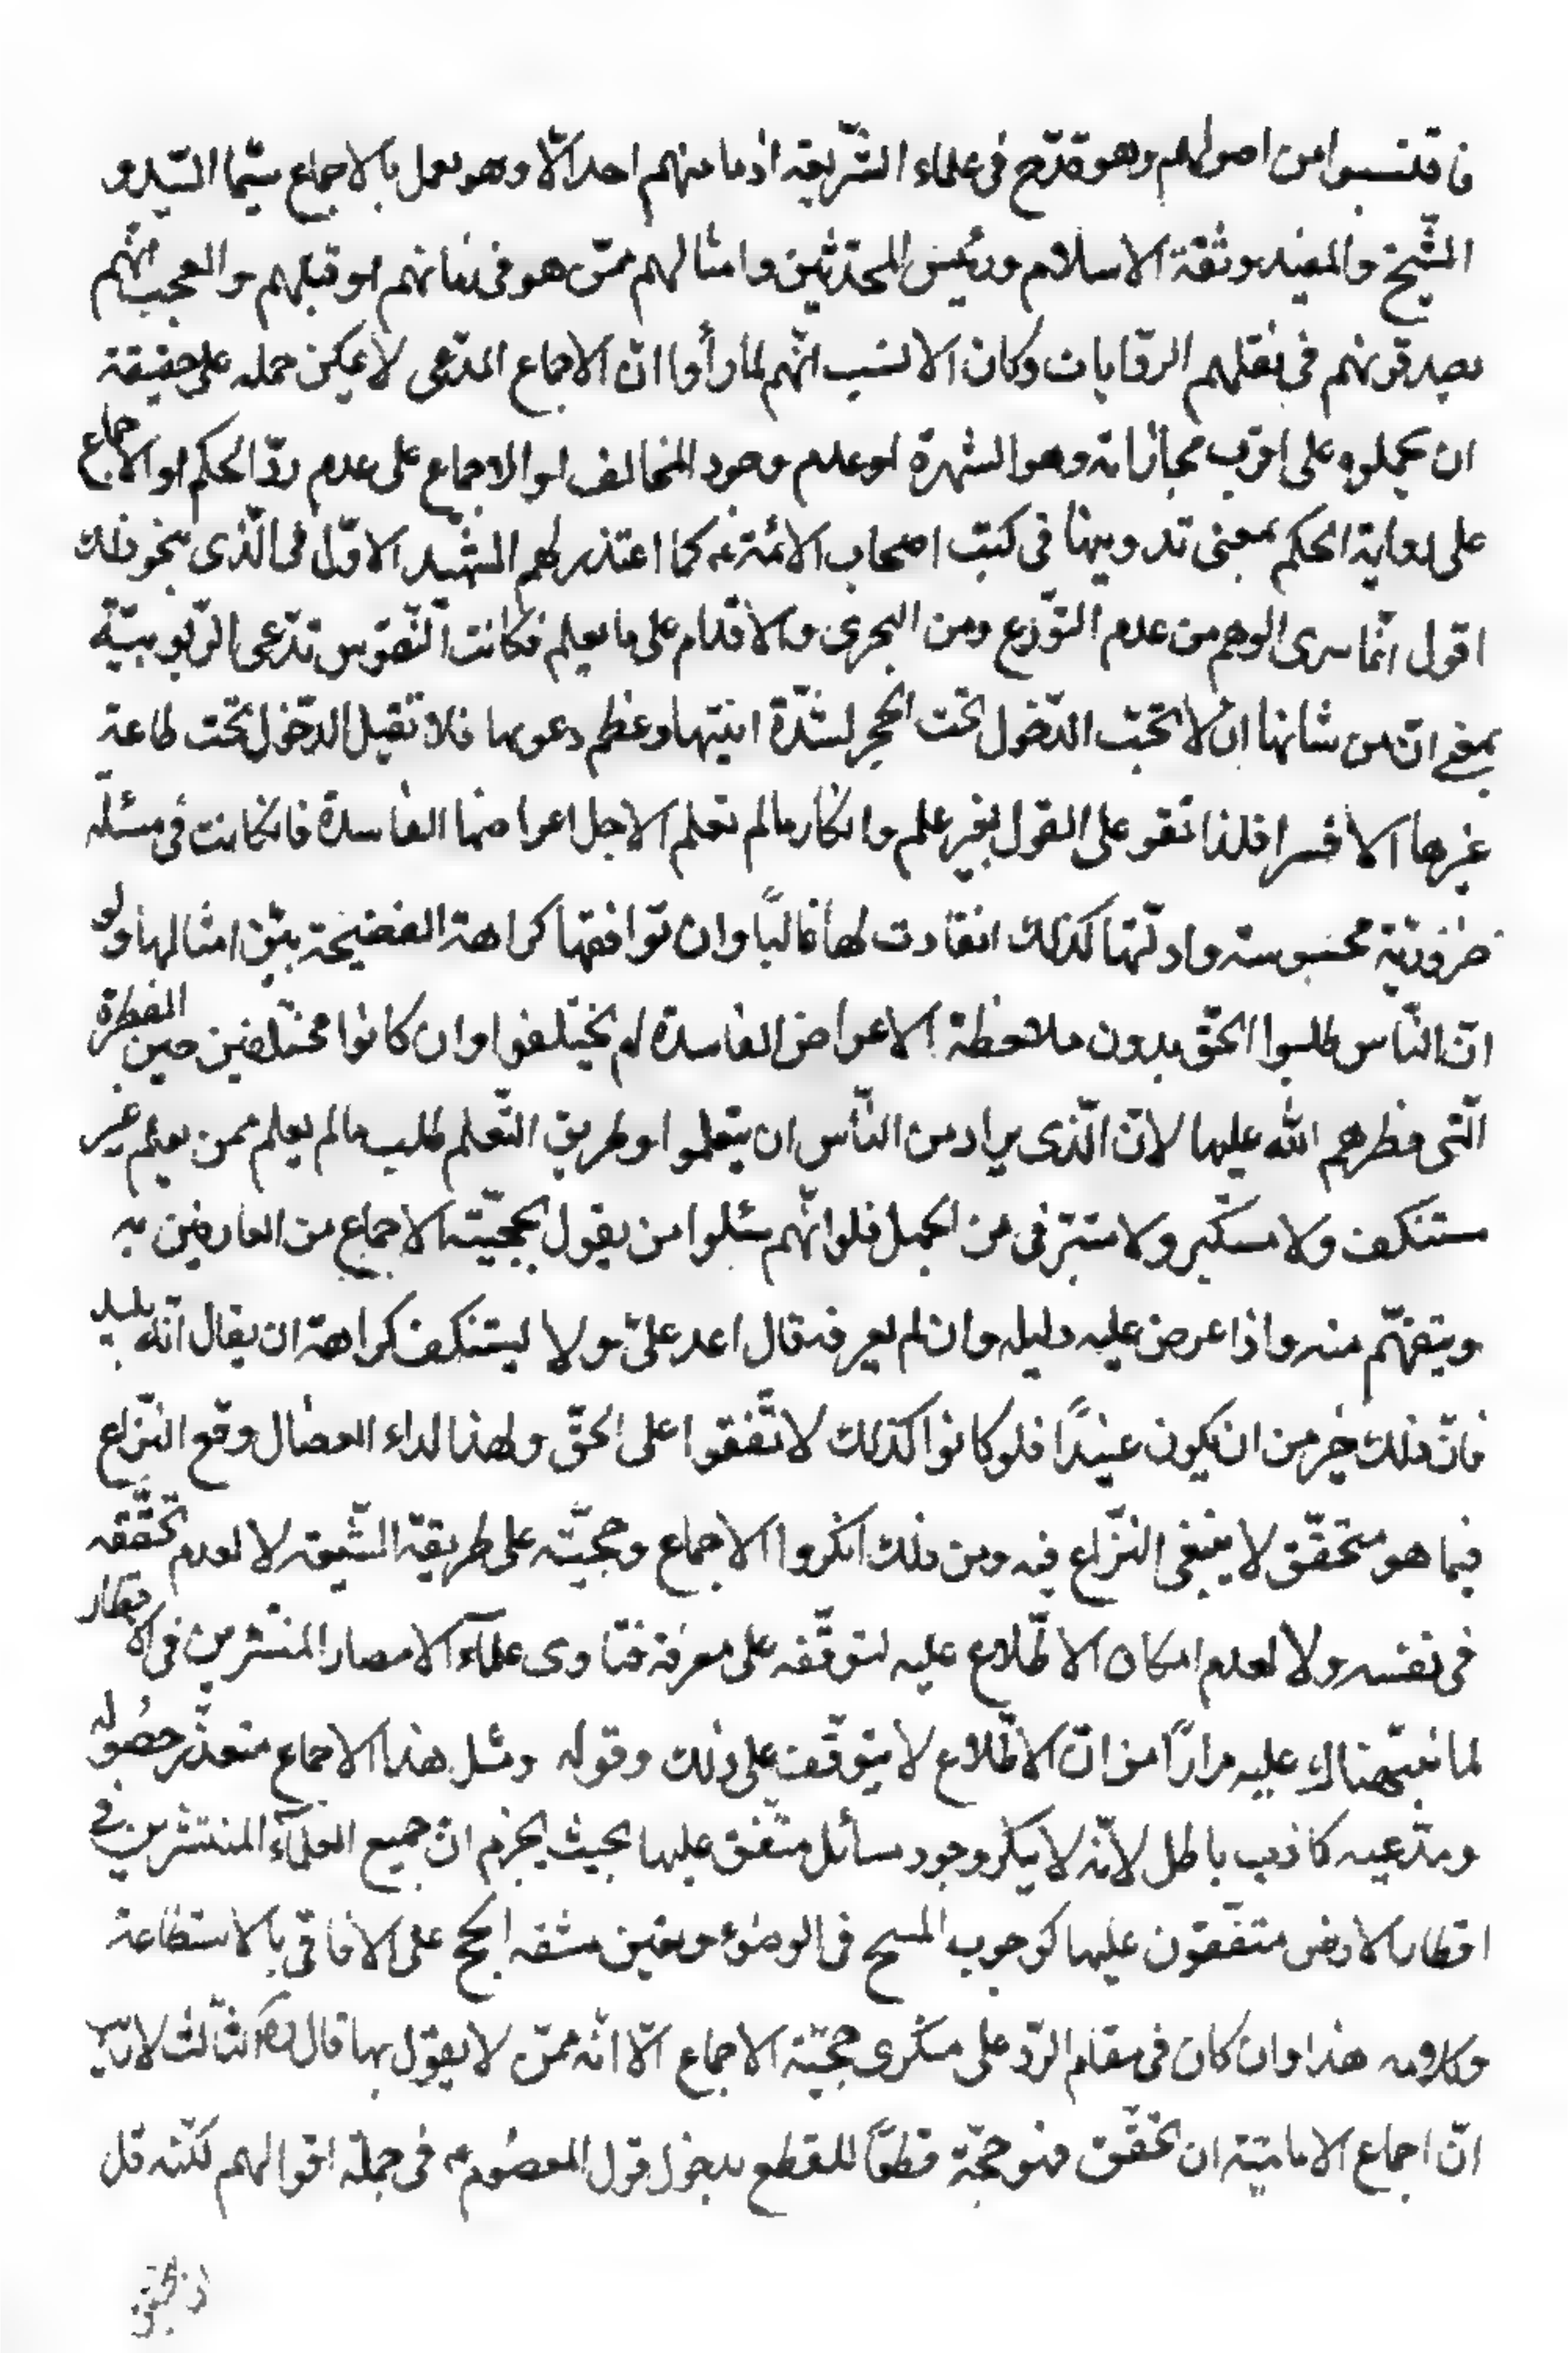 فاقتسبوا من اصولهم وهو قدح فى علماء الشّريعة اذ ما منهم احد الّا وهو يعمل بالاجماع سيّما السّيد و
الشّيخ والمفيد وثقة الاسلام ورئيس المحدّثين وامثالهم ممّن هو فى زمانهم او قبلهم والعجب انّهم
يصدقونهم فى نقلهم الروايات وكان الانسب انّهم لمّا رأوا انّ الاجماع المدّعى لا يمكن حمله على حقيقة
ان يحملوه على اقرب مجازاته وهو الشهرة او عدم وجود المخالف او الاجماع على عدم ردّ الحكم او الاجماع
على رواية الحكم بمعنى تدوينها فى كتب اصحاب الائمة ع كما اعتذر لهم الشّهيد الاوّل فى الّذى بنحو ذلك
اقول انّما سرى الوهم من عدم التّورّع ومن التجرى والاقدام على ما يعلم فكانت النّفوس تدّعى الرّبوبيّة
بمعنى انّ من شانها ان لا تحبّ الدّخول تحت الحجر لشدّة انيتها وعظم دعويها فلا تقبل الدّخول تحت طاعة
غيرها الا قسرا فلذا تقو على القول بغير علم وانكار مالم تعلم الاجل اعراضها الفاسدة فان كانت فى مسئلة
ضروريّة محسوسة وادلّتها كذلك انقادت لها غالبًا وان توافقها كراهة الفضيحة بين امثالها ولو
انّ النّاس طلبوا الحقّ بدون ملاحظة الاعراض الفاسدة لم يختلفوا وان كانوا مختلفين حين الفطرة
الّتى فطرهم الله عليها لانّ الّذى يراد من النّاس ان يتعلموا وطريق التّعلم طلب مالم يعلم ممن يعلم غير
مستنكف ولا مستكبر ولا متبرّ فى من الجهل فلو انّهم سئلوا من يقول بحجّيّة الاجماع من العارفين به
ويتفهّم منه واذا عرض عليه دليله وان لم يعرفه قال اعد علىّ ولا يستنكف كراهة ان يقال انّه بليد
فانّ ذلك خير من ان يكون عنيدًا فلو كانوا كذلك لاتّفقوا على الحقّ ولهذا الداء العضال وقع النّزاع
فيما هو متحقّق لا ينبغى النّزاع فيه ومن ذلك انكروا الاجماع وحجّيّته على طريقة الشّيعة لا لعدم تحقّقه
فى نفسه ولا لعدم امكان الاطّلاع عليه لتوقّفه على معرفة فتاوى علمآء الامصار المنتشرين فى الاقطار
لما نبّهناك عليه مرارًا من انّ الاطّلاع لا يتوقّف على ذلك وقوله ومثل هذا الاجماع متعذّر حصُوله
ومدّعيه كاذب باطل لانّه لا ينكر وجود مسائل متّفق عليها بحيث يجزم انّ جميع العلمآء المنتشرين فى
اقطار الارض متفقون عليها كوجوب المسح فى الوضوء وتعين مشقه الحج على الافاقى بالاستطاعة
وكلامه هذا وان كان فى مقام الرّد على منكرى حجّيّة الاجماع الّا انّه ممّن لا يقول بها قال ره الثّالث لا ريب
انّ اجماع الاماميّة ان تحقّق فهو حجّة قطعًا للقطع بدخول قول المعصُوم ع فى جملة اقوالهم لكنّه قل